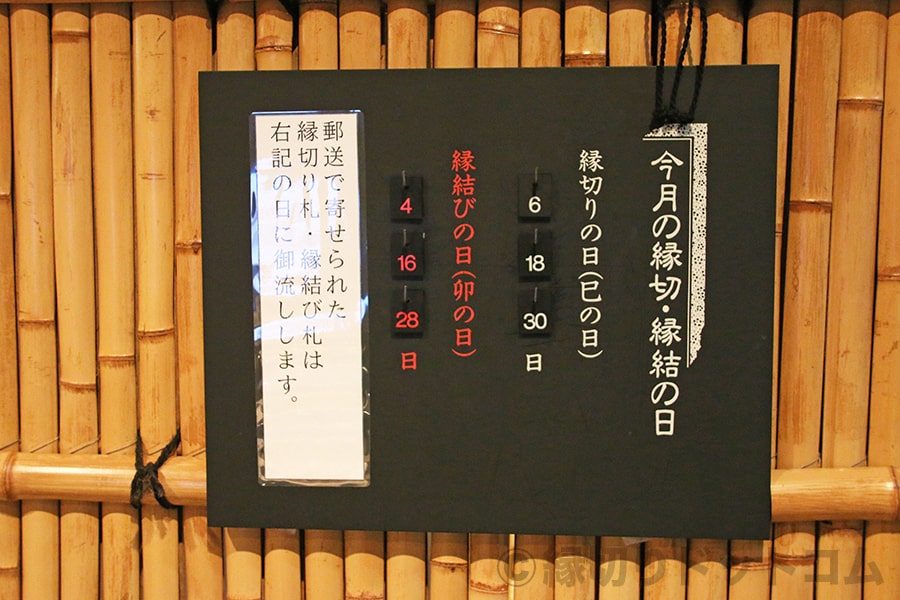 今月の縁切・縁結の日
縁切りの日(巳の日)
6
18
30
日
縁結びの日(卯の日)
4
16
28
日
郵送で寄せられた
縁切り札・縁結び札は
右記の日に御流しします。
©縁切りドットコム